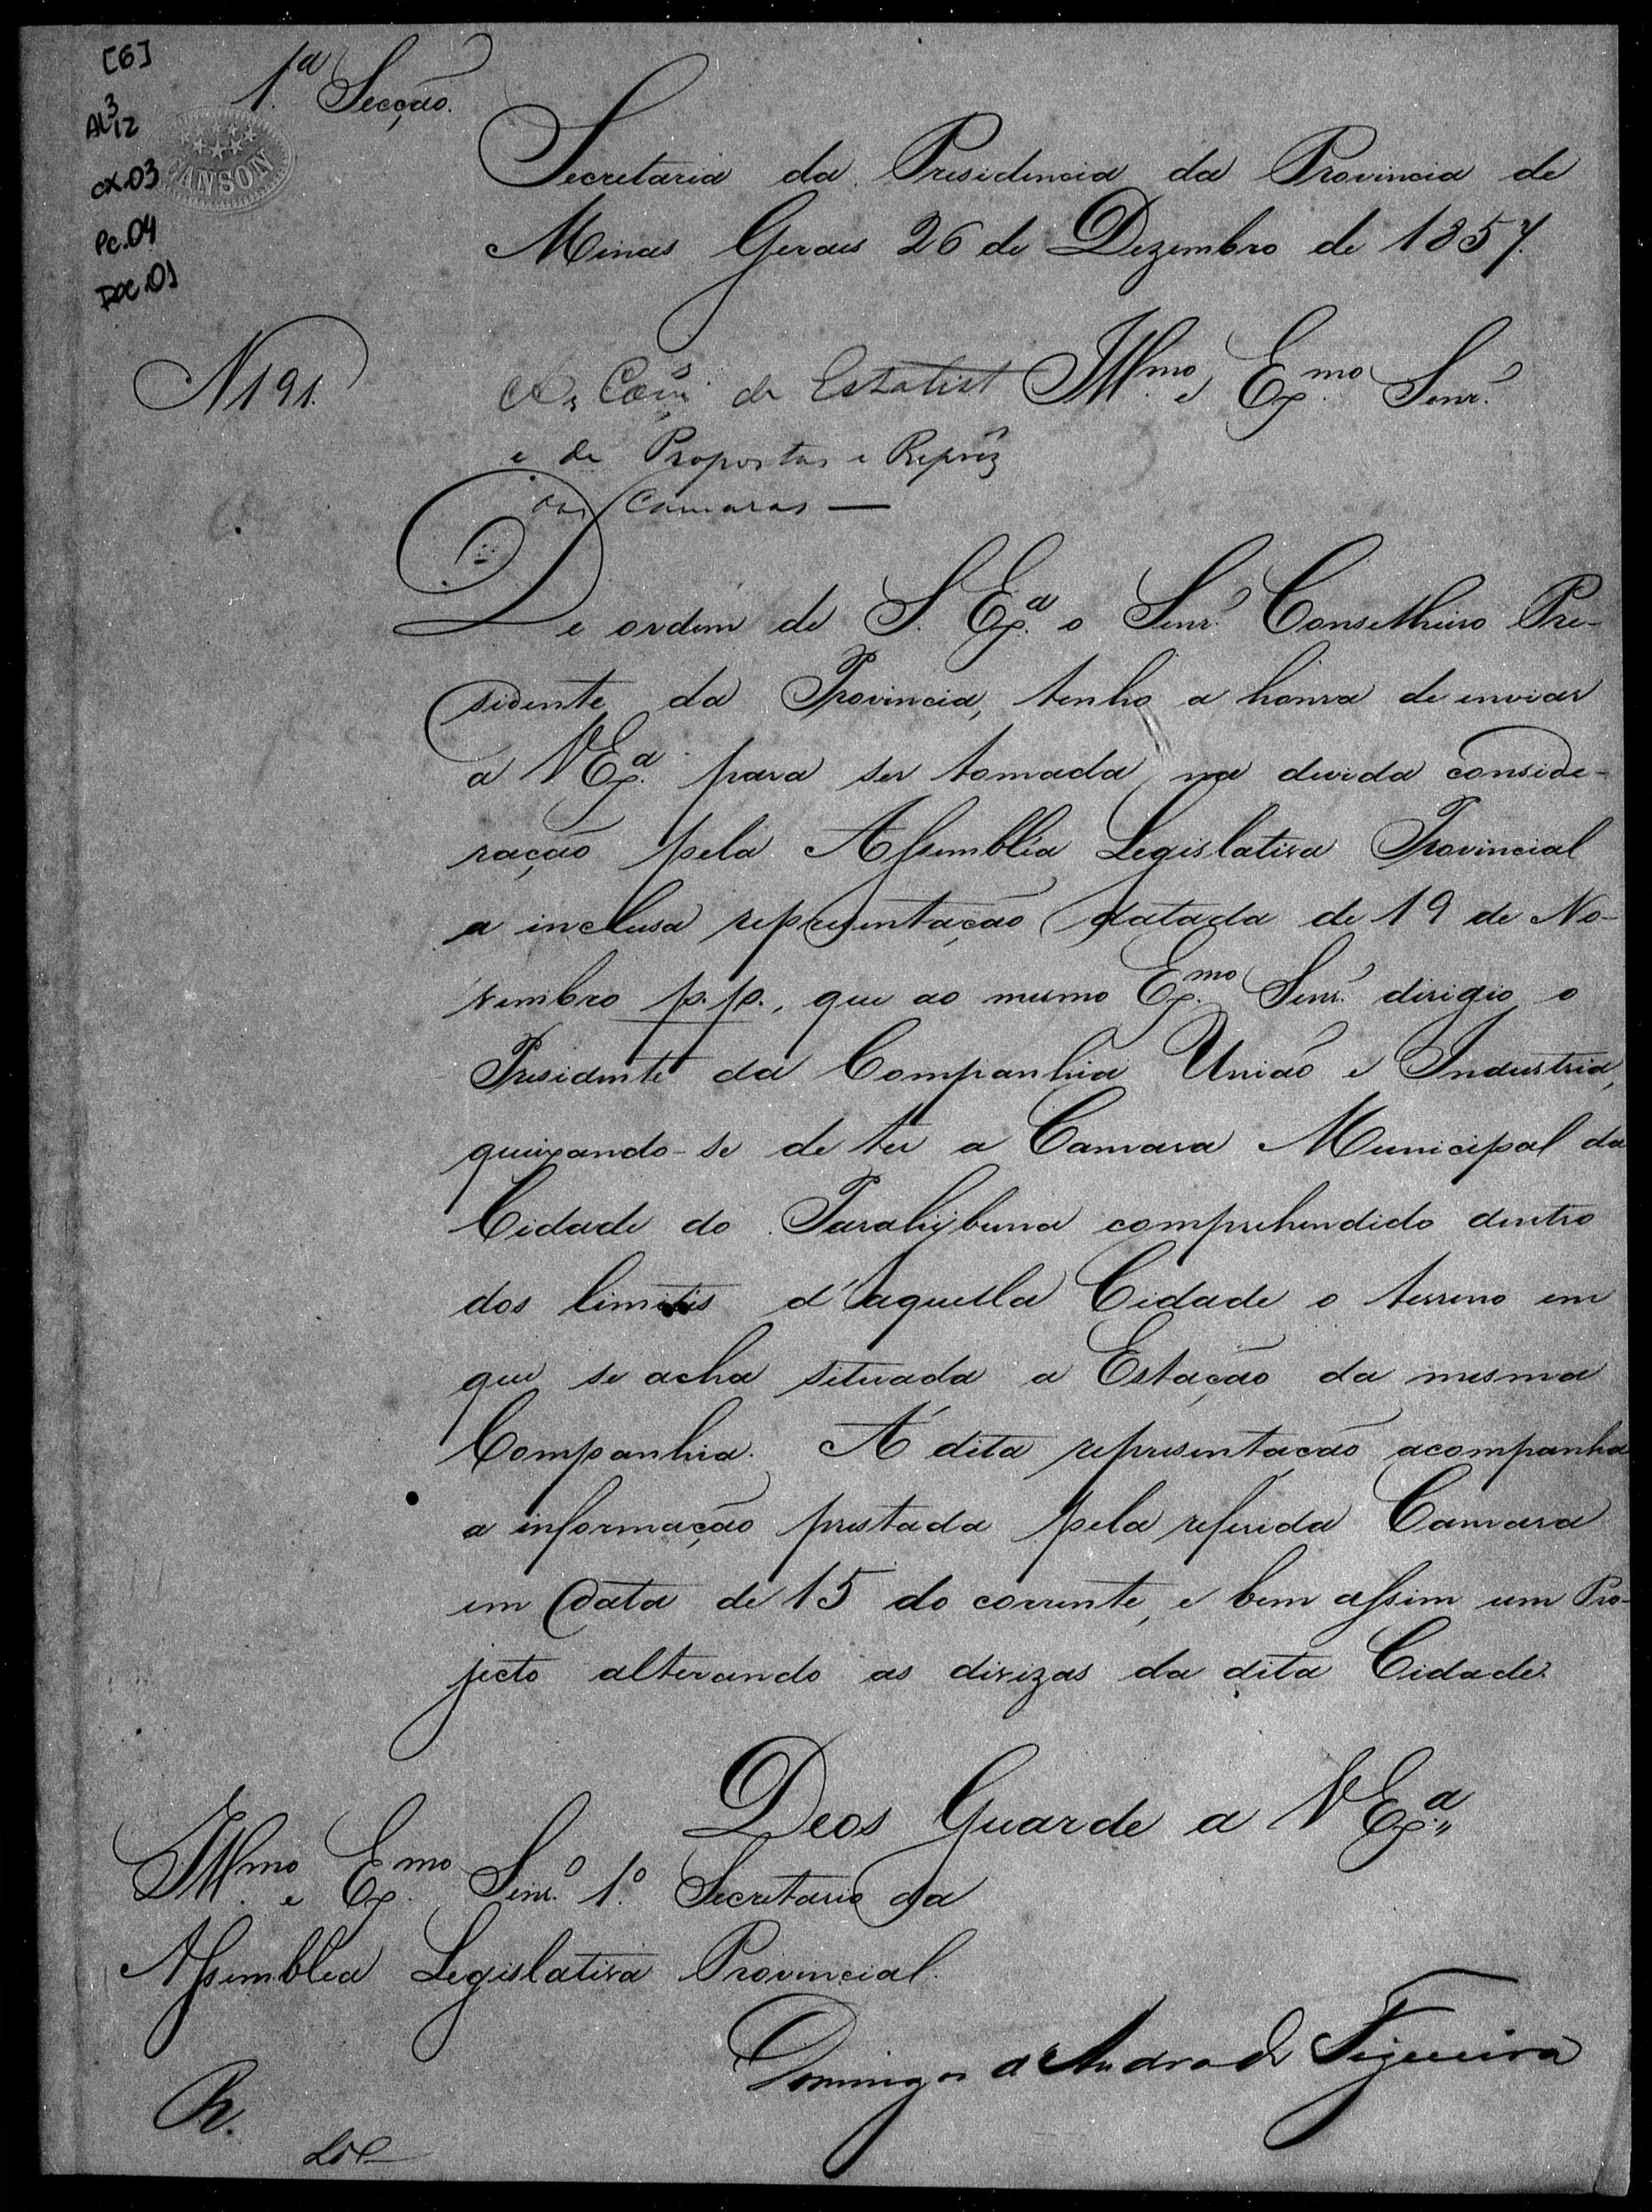 [6]
1.ª Secção.
AL 3/12
CANSON
cx.03
Pc.04
Doc.01
Secretaria da Presidencia da Provincia de
Minas Geraes 26 de Dezembro de 1857.
N 191.
Illmo. e Exmo. Senr.
de Estatist
e de Propostas e Reprez
das Camaras —
De ordem de S. Exª. o Senr. Conselheiro Pre-
sidente da Provincia, tenho a honra de enviar
a V Exª. para ser tomada na devida conside-
ração pela Assembléa Legislativa Provincial
a inclusa representação datada de 19 de No-
vembro p.p., que ao mesmo Exmo. Senr. dirigio o
Presidente da Companhia União e Industria,
queixando-se de ter a Camara Municipal da
Cidade do Parahybuna comprehendido dentro
dos limites d'aquella Cidade o terreno em
que se acha situada a Estação da mesma
Companhia. A' dita representação acompanha
a informação prestada pela referida Camara
em data de 15 do corrente, e bem assim um Pro-
jecto alterando as divizas da dita Cidade.
Deos Guarde a V Exª.
Illmo. e Exmo. Senr. 1.º Secretario da
Assembléa Legislativa Provincial.
Domingos d'Andrade Figueira
R.